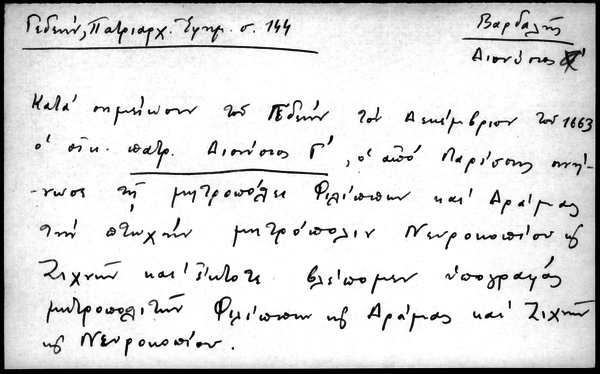 Γεδεών, Πατριαρχ. Ἐφημ. σ. 144
Βαρδαλῆς
Διονύσιος Γ'
Κατά σημείωσιν τοῦ Γεδεών τόν Δεκέμβριον τοῦ 1663
ὁ οἰκ. πατρ. Διονύσιος Γ', ὁ ἀπό Λαρίσσης συνή-
-νωσε τῇ μητροπόλει Φιλίππων καί Δράμας
τήν πτωχήν μητρόπολιν Νευροκοπίου κ
Ζιχνῶν καί ἔκτοτε βλέπομεν ὑπογραφάς
μητροπολιτῶν Φιλίππων κ Δράμας καί Ζιχνῶν
κ Νευροκοπίου.